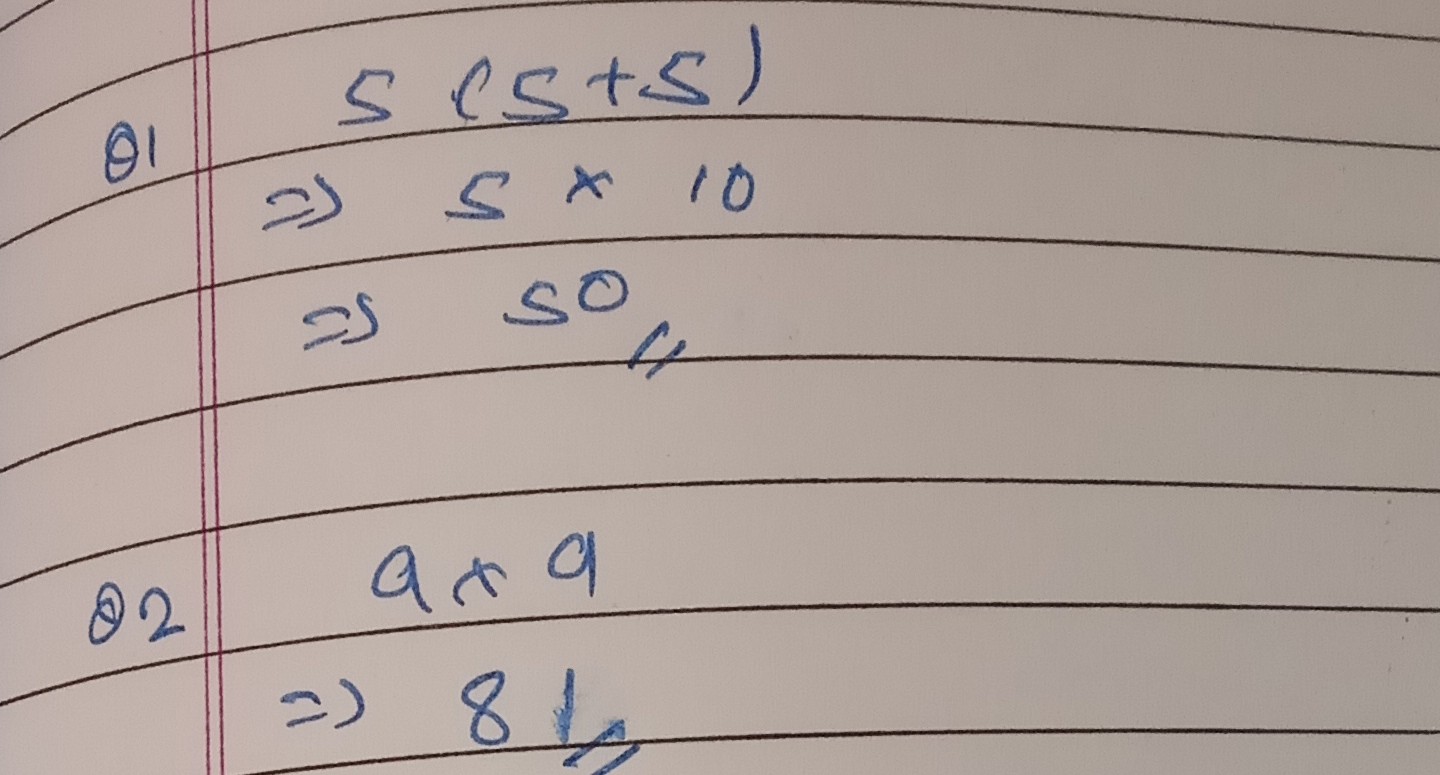 Q1 5 (5+5)
=> 5 × 10
=> 50
Q2 9 × 9
=> 81